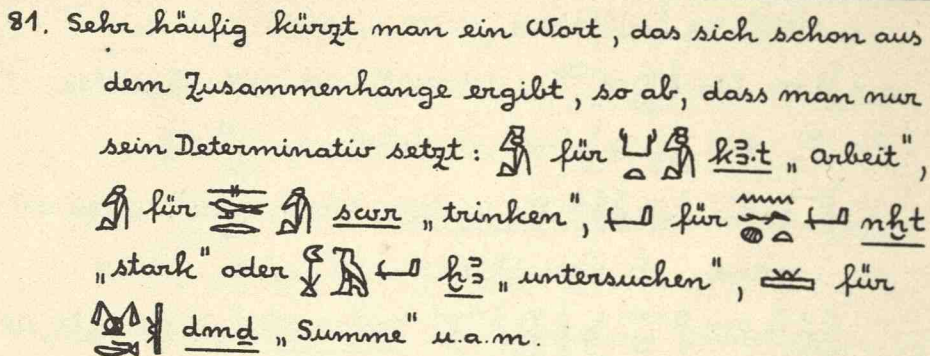 81. Sehr häufig kürzt man ein Wort, das sich schon aus
dem Zusammenhange ergibt, so ab, dass man nur
sein Determinativ setzt: für kꜣ.t „Arbeit",
für swr „trinken", für nḫt
„stark" oder ḫꜣ „untersuchen", für
dmḏ „Summe" u.a.m.